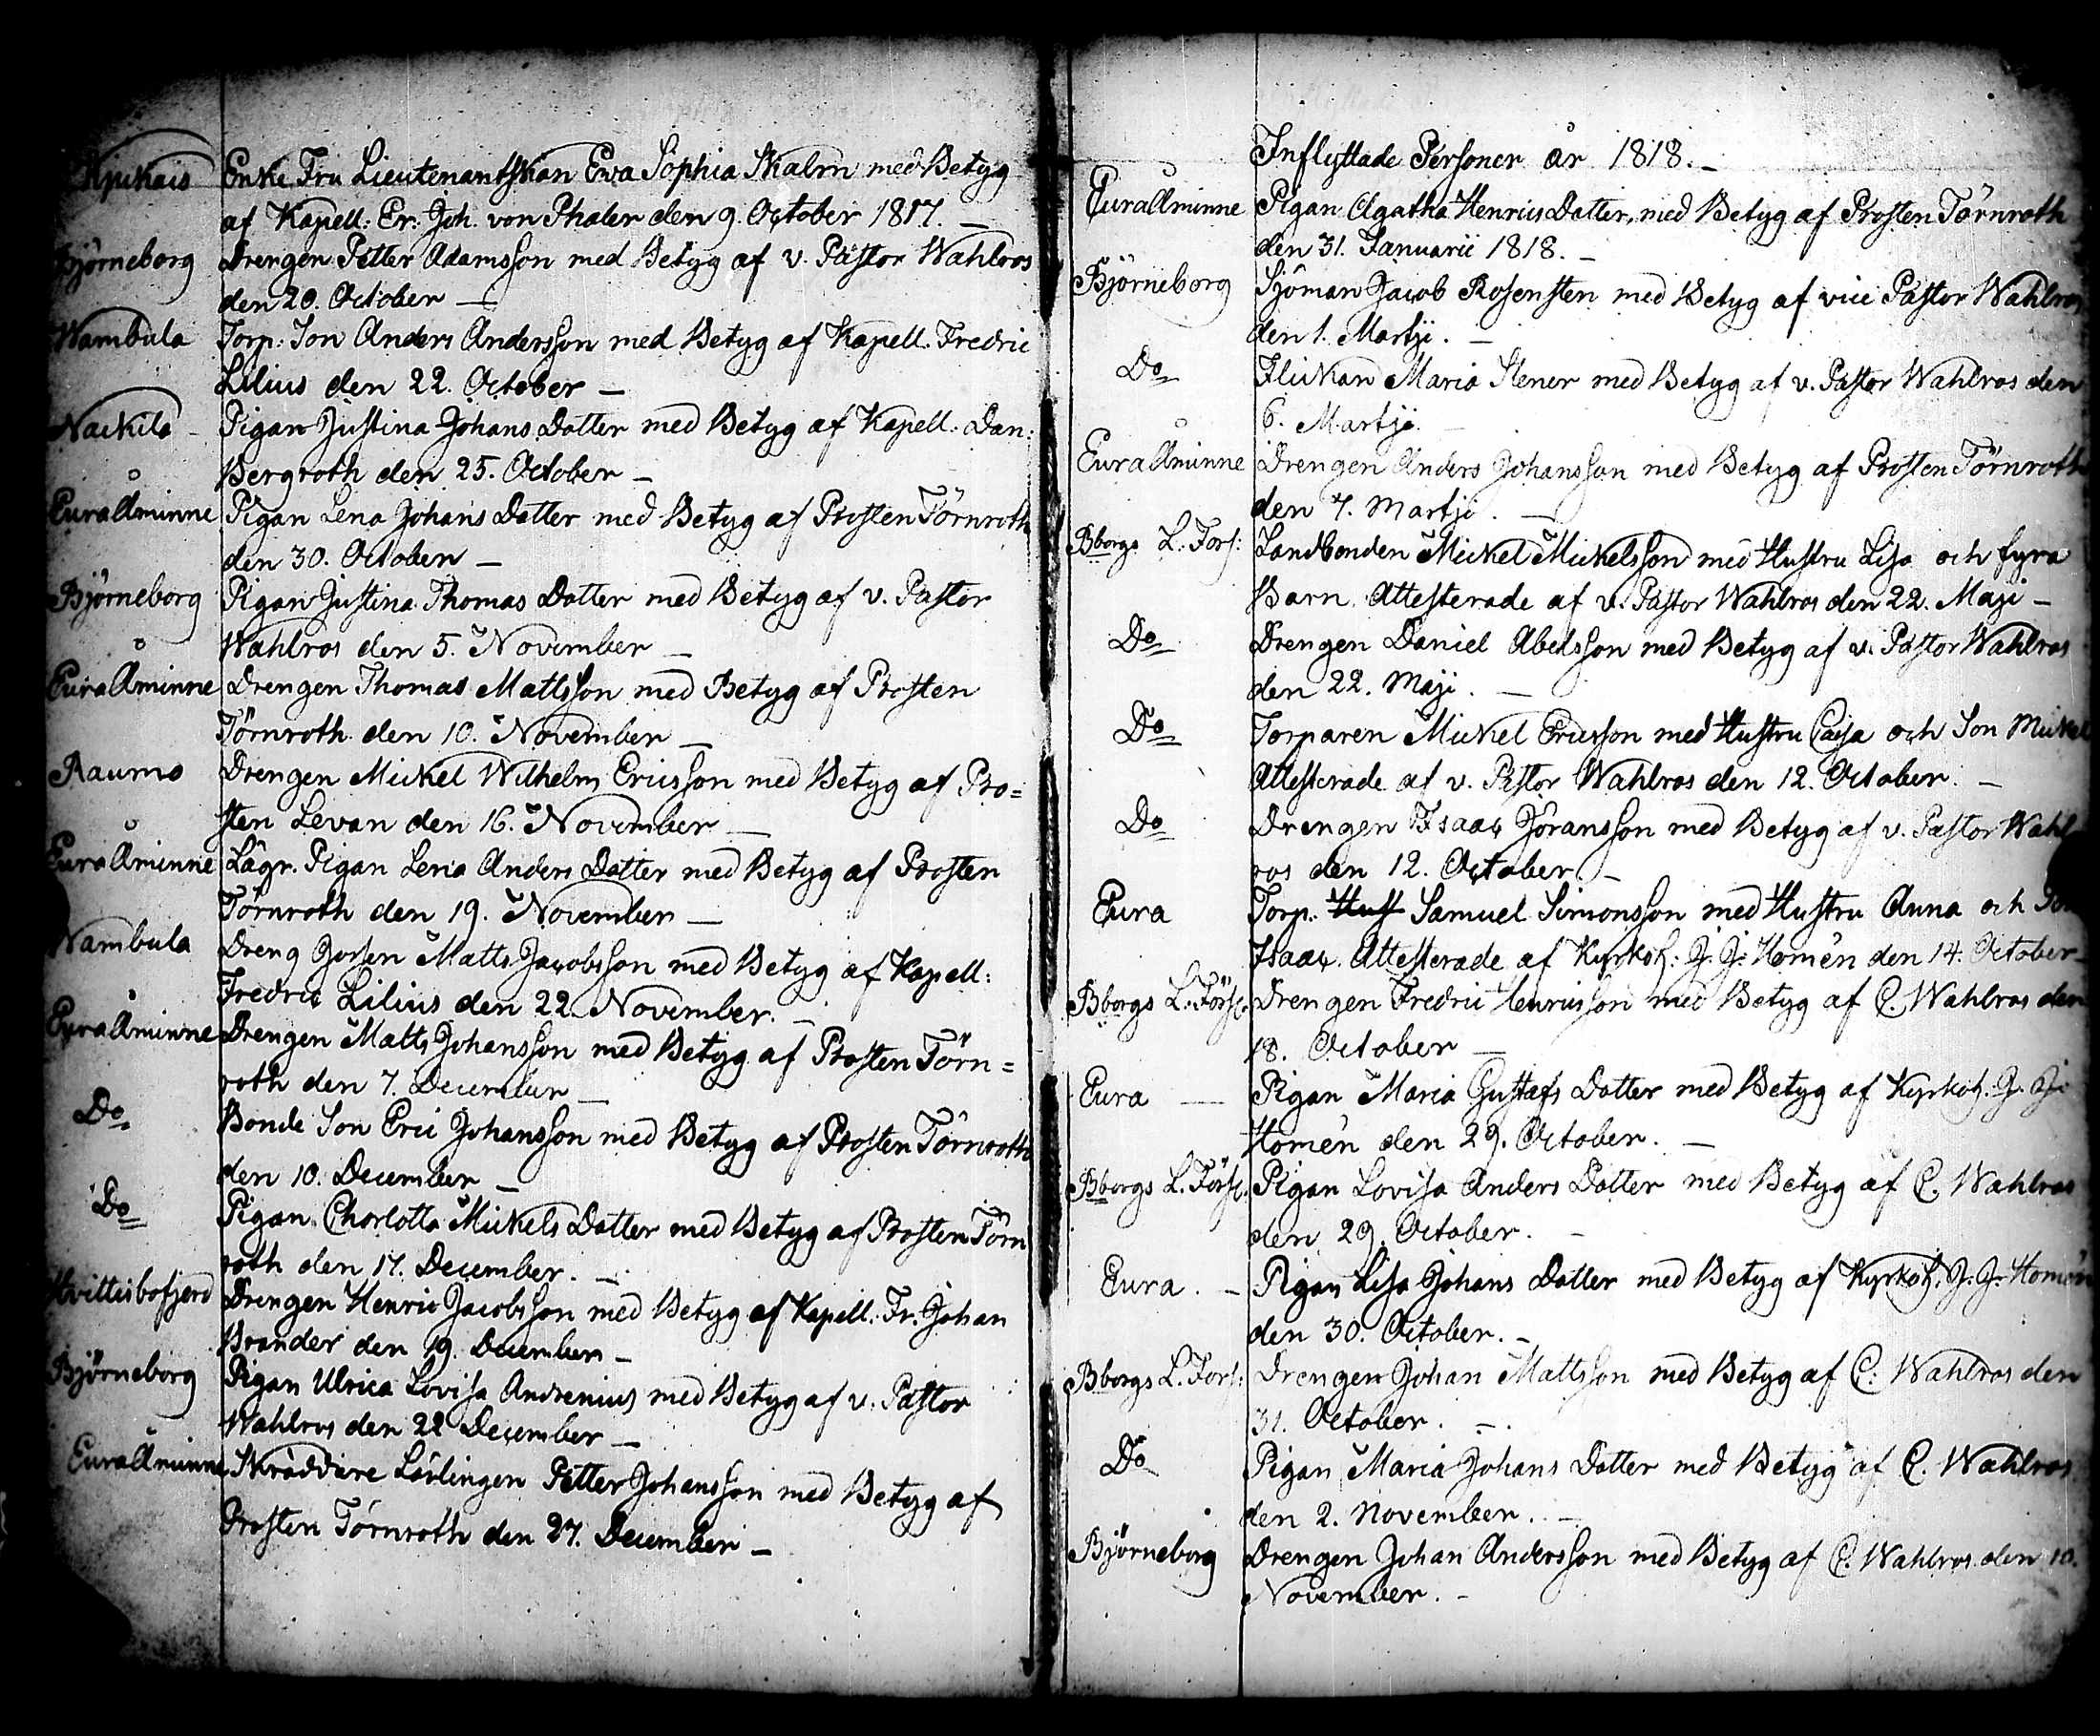 Kjukais Enke Fru Lieutenantskan Ewa Sophia Skalm med Betyg
af Kapell: Er: Joh. von Phaler den 9. October 1817. —
Björneborg Drengen Petter Adamsson med Betyg af v. Pastor Wahlros
den 20. October —
Wambula Torp: Son Anders Andersson med Betyg af Kapell. Fredric
Lilius den 22. October —
Nackila Pigan Justina Johans Dotter med Betyg af Kapell: Dan:
Bergroth den 25. October —
Euraåminne Pigan Lena Johans Dotter med Betyg af Prosten Törnroth
den 30. October —
Björneborg Pigan Justina Thomas Dotter med Betyg af v. Pastor
Wahlros den 5. November —
Euraåminne Drengen Thomas Mattsson med Betyg af Prosten
Törnroth den 10. November —
Raumo Drengen Mickel Wilhelm Ericsson med Betyg af Pro=
sten Levan den 16. November —
Euraåminne Lägr. Pigan Lena Anders Dotter med Betyg af Prosten
Törnroth den 19. November —
Wambula Dreng Gossen Matts Jacobsson med Betyg af Kapell:
Fredric Lilius den 22 November. —
Euraåminne Drengen Matts Johansson med Betyg af Prosten Törn=
roth den 7. December —
Do Bonde Son Eric Johansson med Betyg af Prosten Törnroth
den 10. December —
Do Pigan Charlotta Mickels Dotter med Betyg af Prosten Törn
roth den 17. December. —
Hvittisbofjerd Drengen Henric Jacobsson med Betyg af Kapell. Fr. Johan
Brander den 19. December —
Björneborg Pigan Ulrica Lovisa Andrenius med Betyg af v. Pastor
Wahlros den 22 December —
Euraåminne Skräddare Lärlingen Petter Johansson med Betyg af
Prosten Törnroth den 27. December —
Inflyttade Personer år 1818. —
Euraåminne Pigan Agatha Henrics Dotter, med Betyg af Prosten Törnroth
den 31. Januarii 1818. —
Björneborg Sjöman Jacob Rosensten med Betyg af vice Pastor Wahlros
den 1. Martji. —
Do Flickan Maria Stener med Betyg af v. Pastor Wahlros den
6. Martji. —
Euraåminne Drengen Anders Johansson med Betyg af Prosten Törnroth
den 7. Martji. —
Bborgs L. Förs: Landbonden Mickel Mickelsson med Hustru Lisa och fyra
Barn. Attesterade af v. Pastor Wahlros den 22. Maji —
Do Drengen Daniel Abelsson med Betyg af v. Pastor Wahlros
den 22. Maji. —
Do Torparen Mickel Ericsson med Hustru Caisa och Son Mickel
Attesterade af v. Pastor Wahlros den 12. October. —
Do Drengen Isaac Jöransson med Betyg af v. Pastor Wahl
ros den 12. October —
Eura Torp. Hust Samuel Simonsson med Hustru Anna och Son
Isaac. Attesterade af Kyrkoh: J. J. Homén den 14. October —
Bborgs L. Förs: Drengen Fredric Henricsson med Betyg af C. Wahlros den
18. October —
Eura — Pigan Maria Gustafs Dotter med Betyg af Kyrkoh: J. J.
Homén den 29. October. —
Bborgs L. Förs: Pigan Lovisa Anders Dotter med Betyg af C. Wahlros
den 29. October. —
Eura. — Pigan Lisa Johans Dotter med Betyg af Kyrkoh: J. J. Homén
den 30. October. —
Bborgs L. Förs: Drengen Johan Mattsson med Betyg af C. Wahlros den
31. October. —
Do Pigan Maria Johans Dotter med Betyg af C. Wahlros
den 2. November. —
Björneborg Drengen Johan Andersson med Betyg af C. Wahlros den 10.
November. —